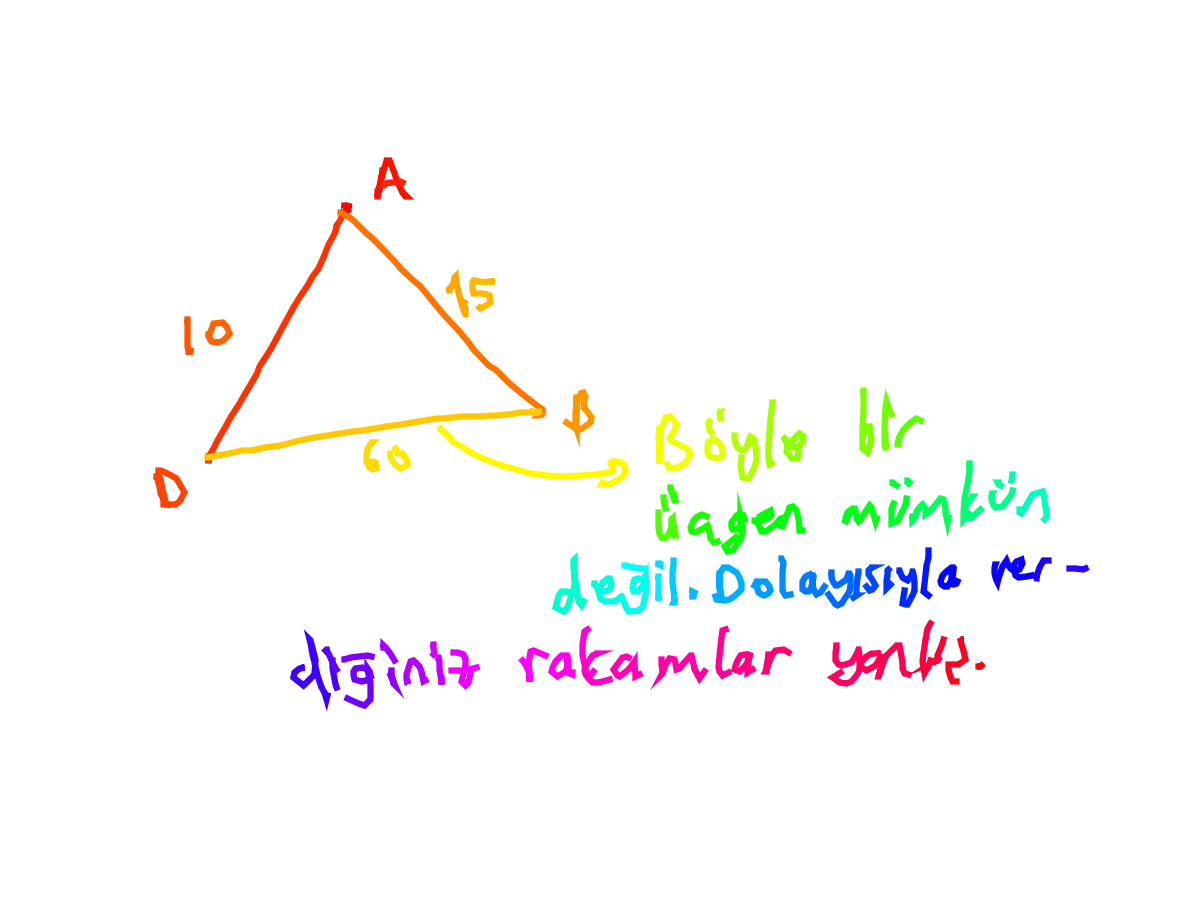 A
15
10
B
60
D
Böyle bir
üçgen mümkün
değil. Dolayısıyla ver-
diğiniz rakamlar yanlış.